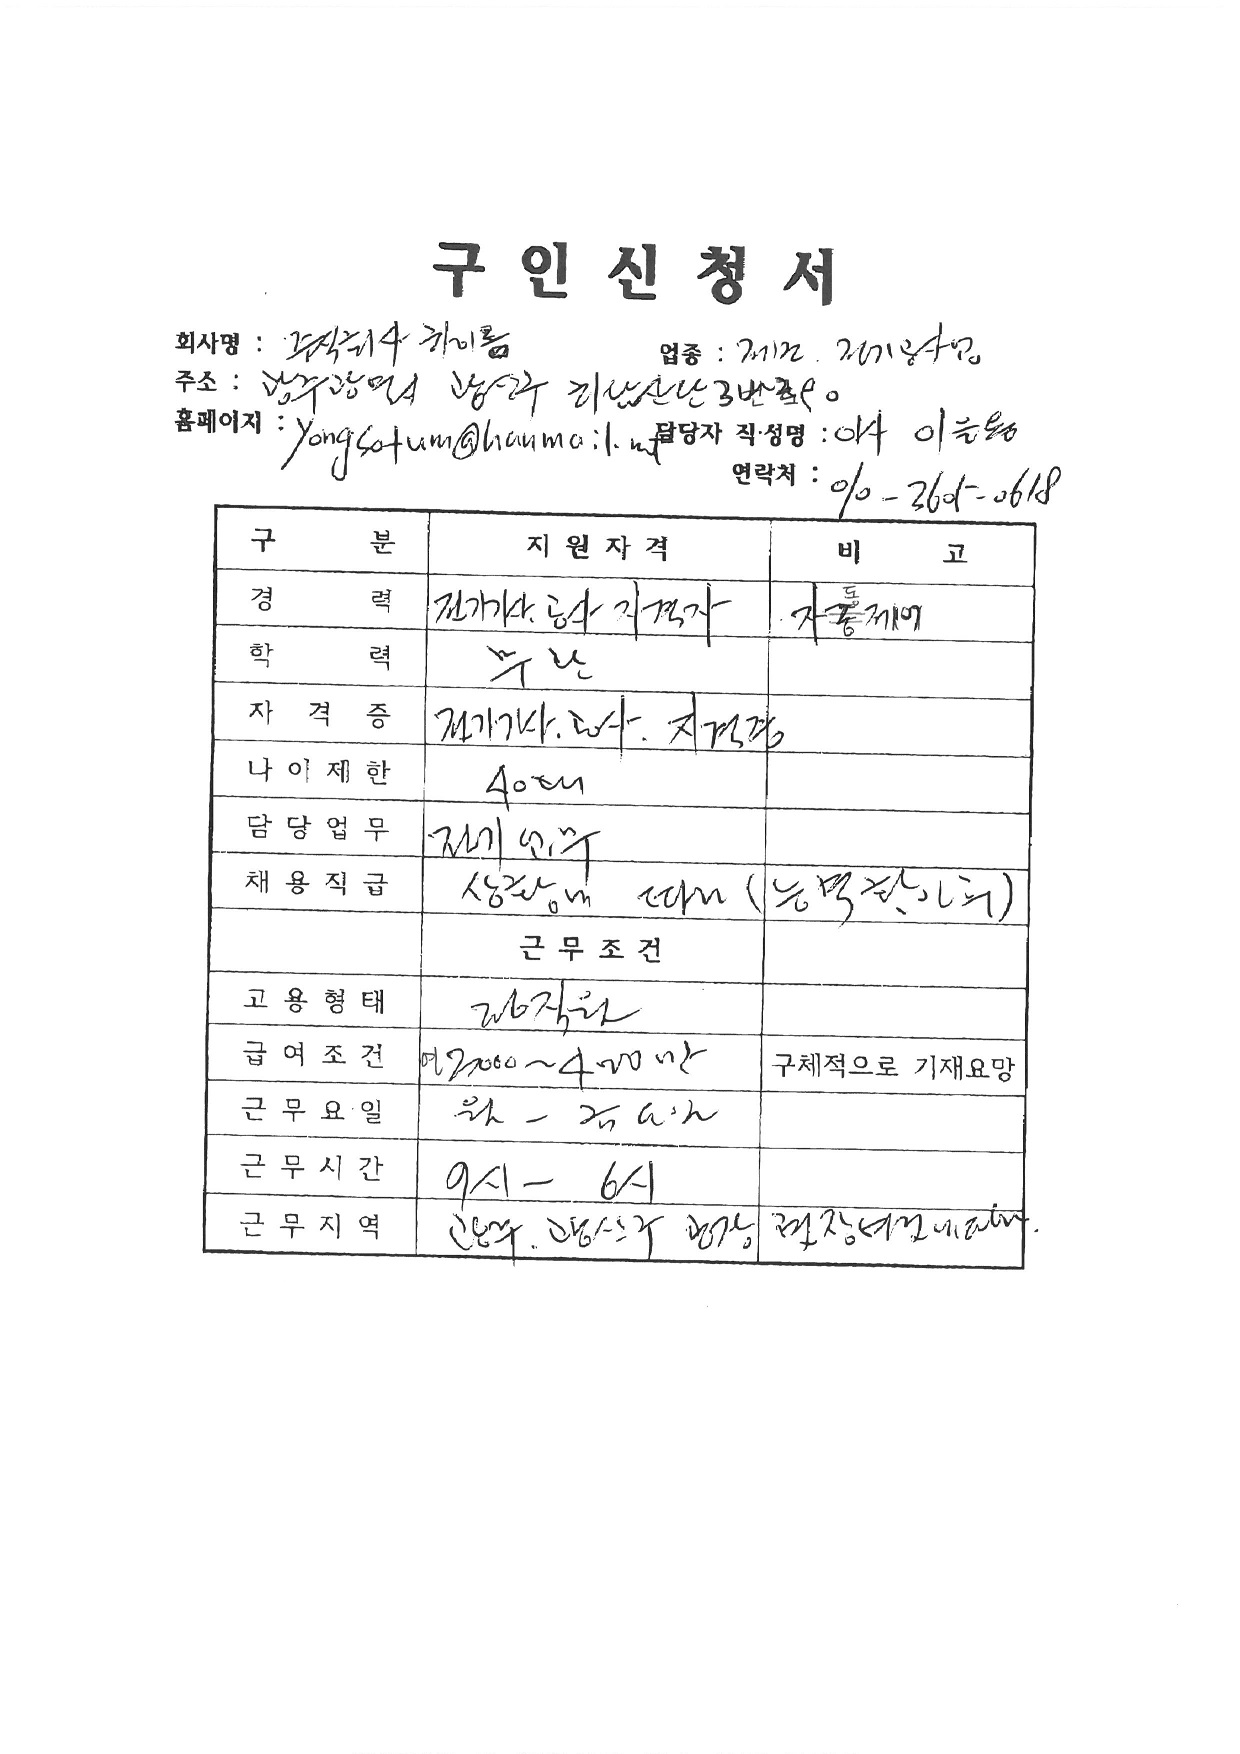 구인신청서
회사명 : 주식회사 하이룸 업종 : 제조. 전기공사업
주소 : 광주광역시 광산구 하남산단3번로90
홈페이지 : yongsotum@hanmail.net 담당자 직·성명 : 이사 이은용
연락처 : 010-3605-0618
구 분 지원자격 비 고
경 력 전기기사. 공사 자격자 자동제어
학 력 무관
자 격 증 전기기사. 공사. 자격증
나이제한 40대
담당업무 전기업무
채용직급 상황에 따라 (능력
근무조건
고용형태 정직원
급여조건 연2,000~4000만 구체적으로 기재요망
근무요일 월 - 금요일
근무시간 9시 - 6시
근무지역 광주. 광산구 공장 현장